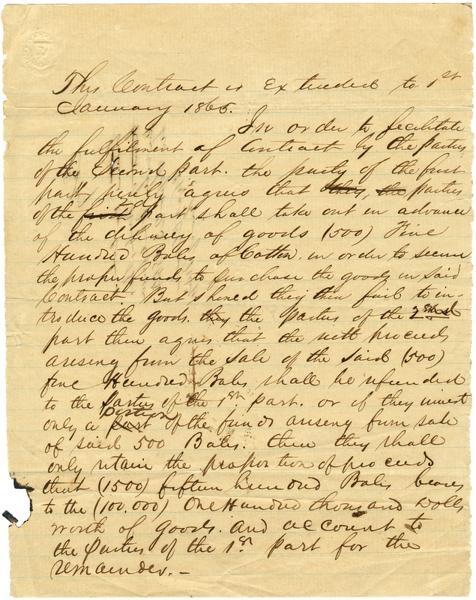 This Contract is Extended to 1st
January 1865.
In order to facilitate
the fulfilment of contract by the Parties
of the Second part. the party of the first
part, agrees that they, the parties
of the first part shall take out in advance
of the delivery of goods (500) Five
Hundred Bales of Cotton in order to secure
the proper funds to purchase the goods in said
Contract. But shoned they then fail to in-
troduce the goods. they the Parties of the 2nd
part then agrees that the nett proceeds
aresing from the Sale of the Said (500)
five Hundred Bales shall be refunded
to the Parties of the 1st Part. or if they invest
only a part portion of the funds areseng from sale
of said 500 Bales. then they shall
only retain the proportion of proceeds
that (1500) fifteen Hundred Bales bears
to the (100,000) One Hundred thousand Dolls
worth of Goods. and account to
the Parties of the 1st Part for the
remainder. –